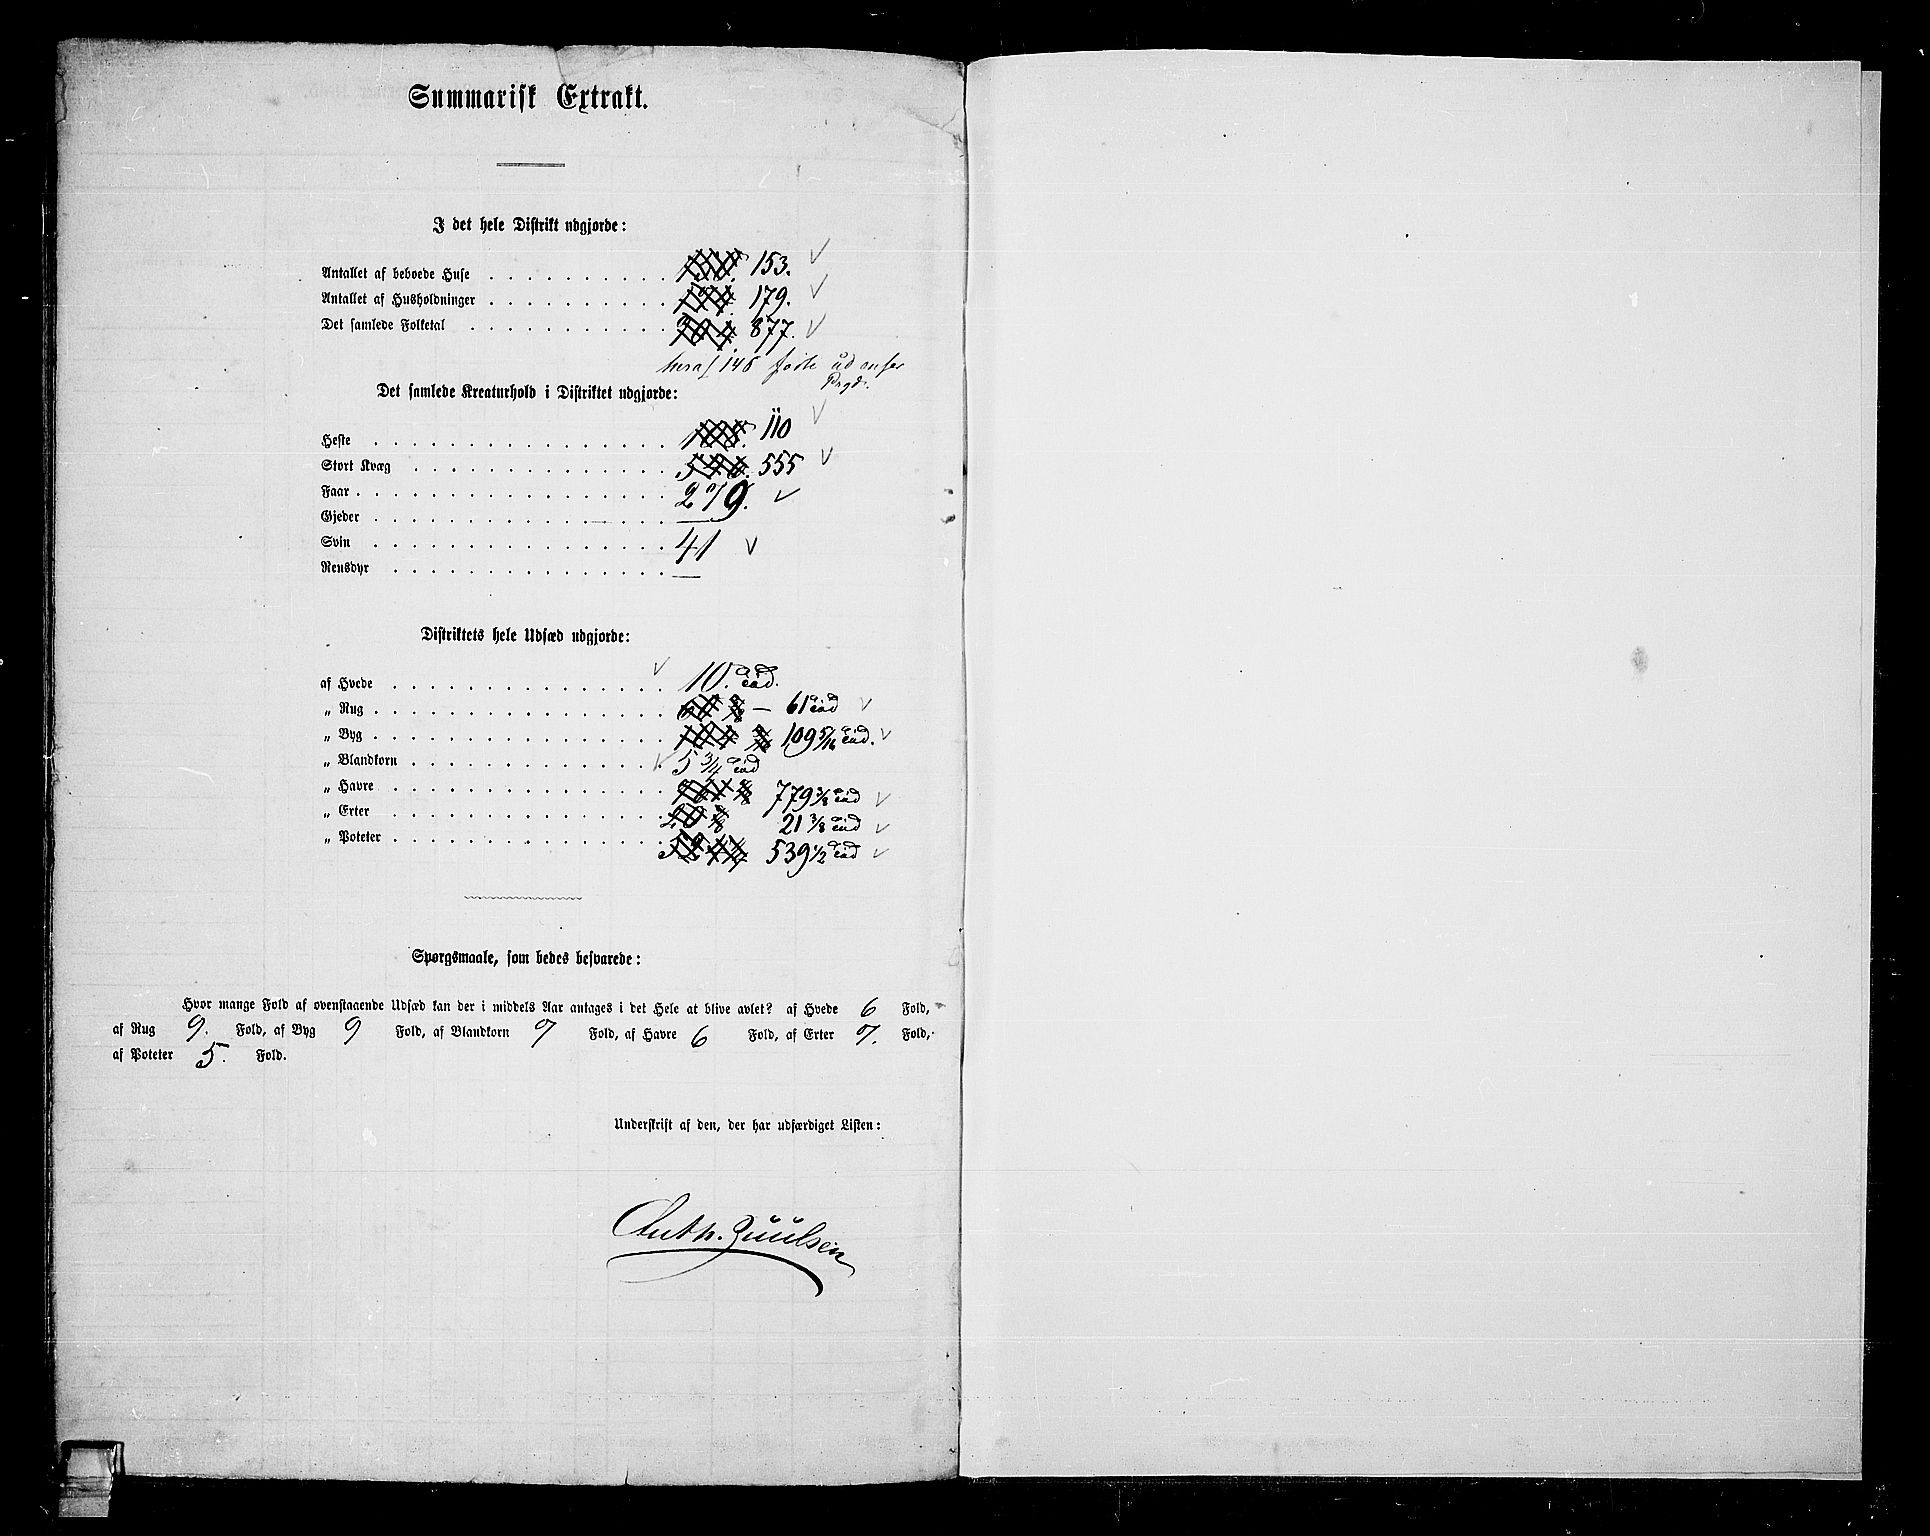 Summarisk Extrakt.
I det hele Distrikt udgjorde:
Antallet af beboede Huse . . . . . . . . . . 153.
Antallet af Husholdninger . . . . . . . . . . 179.
Det samlede Folketal . . . . . . . . . . . 877.
heraf 146 födte ud
Det samlede Kreaturhold i Distriktet udgjorde:
Heste . . . . . . . . . . . . . . . . 110
Stort Kvæg . . . . . . . . . . . . . . 555
Faar . . . . . . . . . . . . . . . . . 279.
Gjeder . . . . . . . . . . . . . . . . —
Svin . . . . . . . . . . . . . . . . 41
Rensdyr . . . . . . . . . . . . . . . —
Distriktets hele Udsæd udgjorde:
af Hvede . . . . . . . . . . . . . . . 10.
„ Rug . . . . . . . . . . . . . . . . — 61
„ Byg . . . . . . . . . . . . . . . . 109 5/16
„ Blandkorn . . . . . . . . . . . . . . 5 3/4
„ Havre . . . . . . . . . . . . . . . 779 3/8
„ Erter . . . . . . . . . . . . . . . 21 3/8
„ Poteter . . . . . . . . . . . . . . . 539 1/2
Spørgsmaale, som bedes besvarede:
Hvor mange Fold af ovenstaaende Udsæd kan der i middels Aar antages i det Hele at blive avlet? af Hvede 6 Fold,
af Rug 9. Fold, af Byg 9 Fold, af Blandkorn 7 Fold, af Havre 6 Fold, af Erter 7. Fold,
af Poteter 5. Fold.
Underskrift af den, der har udfærdiget Listen:
Anth. Juulsen